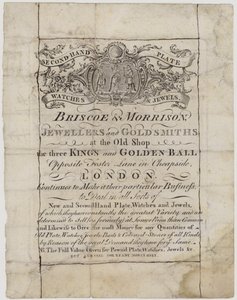 SECOND HAND PLATE
WATCHES & JEWELS
BRISCOE & MORRISON,
JEWELLERS and GOLDSMITHS
at the Old Shop
the three KINGS and GOLDEN BALL
Opposite Foster Lane in Cheapside,
LONDON.
Continues to Make it their particular Business,
to Deal in all Sorts of
New and Second Hand Plate, Watches and Jewels,
of which they have constantly the greatest Variety and are
determin'd to sell (as formerly) at lower Prices than Common
and Likewise to Give the most Money for any Quantities of
Old Plate, Watches, Jewels,
by Reason of the great Demand they have for ye Same.
The Full Value Given for Pawn'd Plate, Watches Jewels &c.